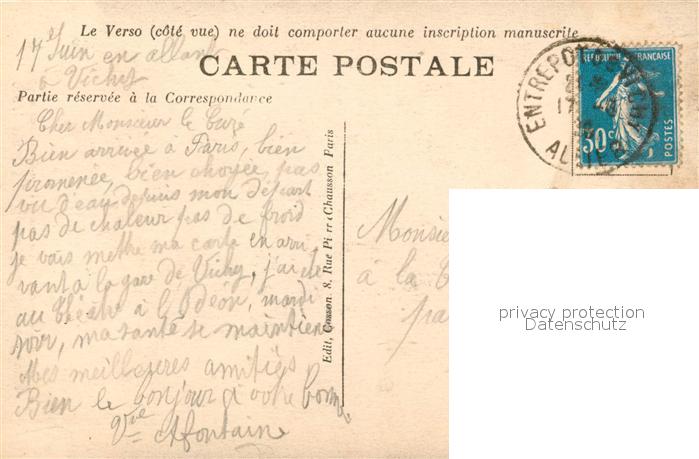 Le Verso (côté vue) ne doit comporter aucune inscription manuscrite
CARTE POSTALE
Partie réservée à la Correspondance
17 Juin en allant
à Vichy
Cher Monsieur le Curé
Bien arrivée à Paris, bien
promenée, bien choyée, pas
vu d'eau depuis mon départ
pas de chaleur pas de froid
je vais mettre ma carte en arri
vant à la gare de Vichy, j'ai été
au théâtre à l'Odéon, mardi
soir, ma santé se maintient
Mes meilleures amitiés
Bien le bonjour à votre bonne
Vve Lafontaine
Edit, Cosson 8, Rue Pierre Chausson Paris
Monsie
à la
pa
ENTREPOT
17
ALLIER
REPUBLIQUE FRANÇAISE
50c
POSTES
privacy protection
Datenschutz